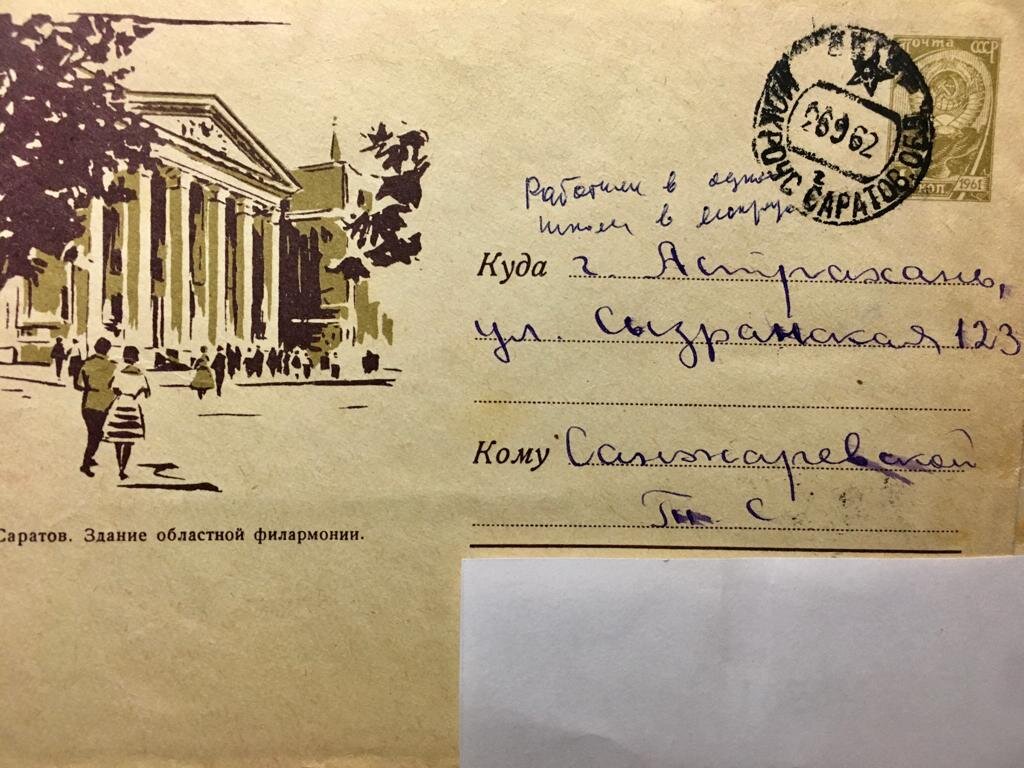 Почта СССР
МОКРОУС САРАТОВ.ОБЛ.
26 9 62
2
КОП 1961
Работали в одной
школе в
Куда г. Астрахань,
ул. Сызранская 123
Кому Санжаревской
С
Саратов. Здание областной филармонии.